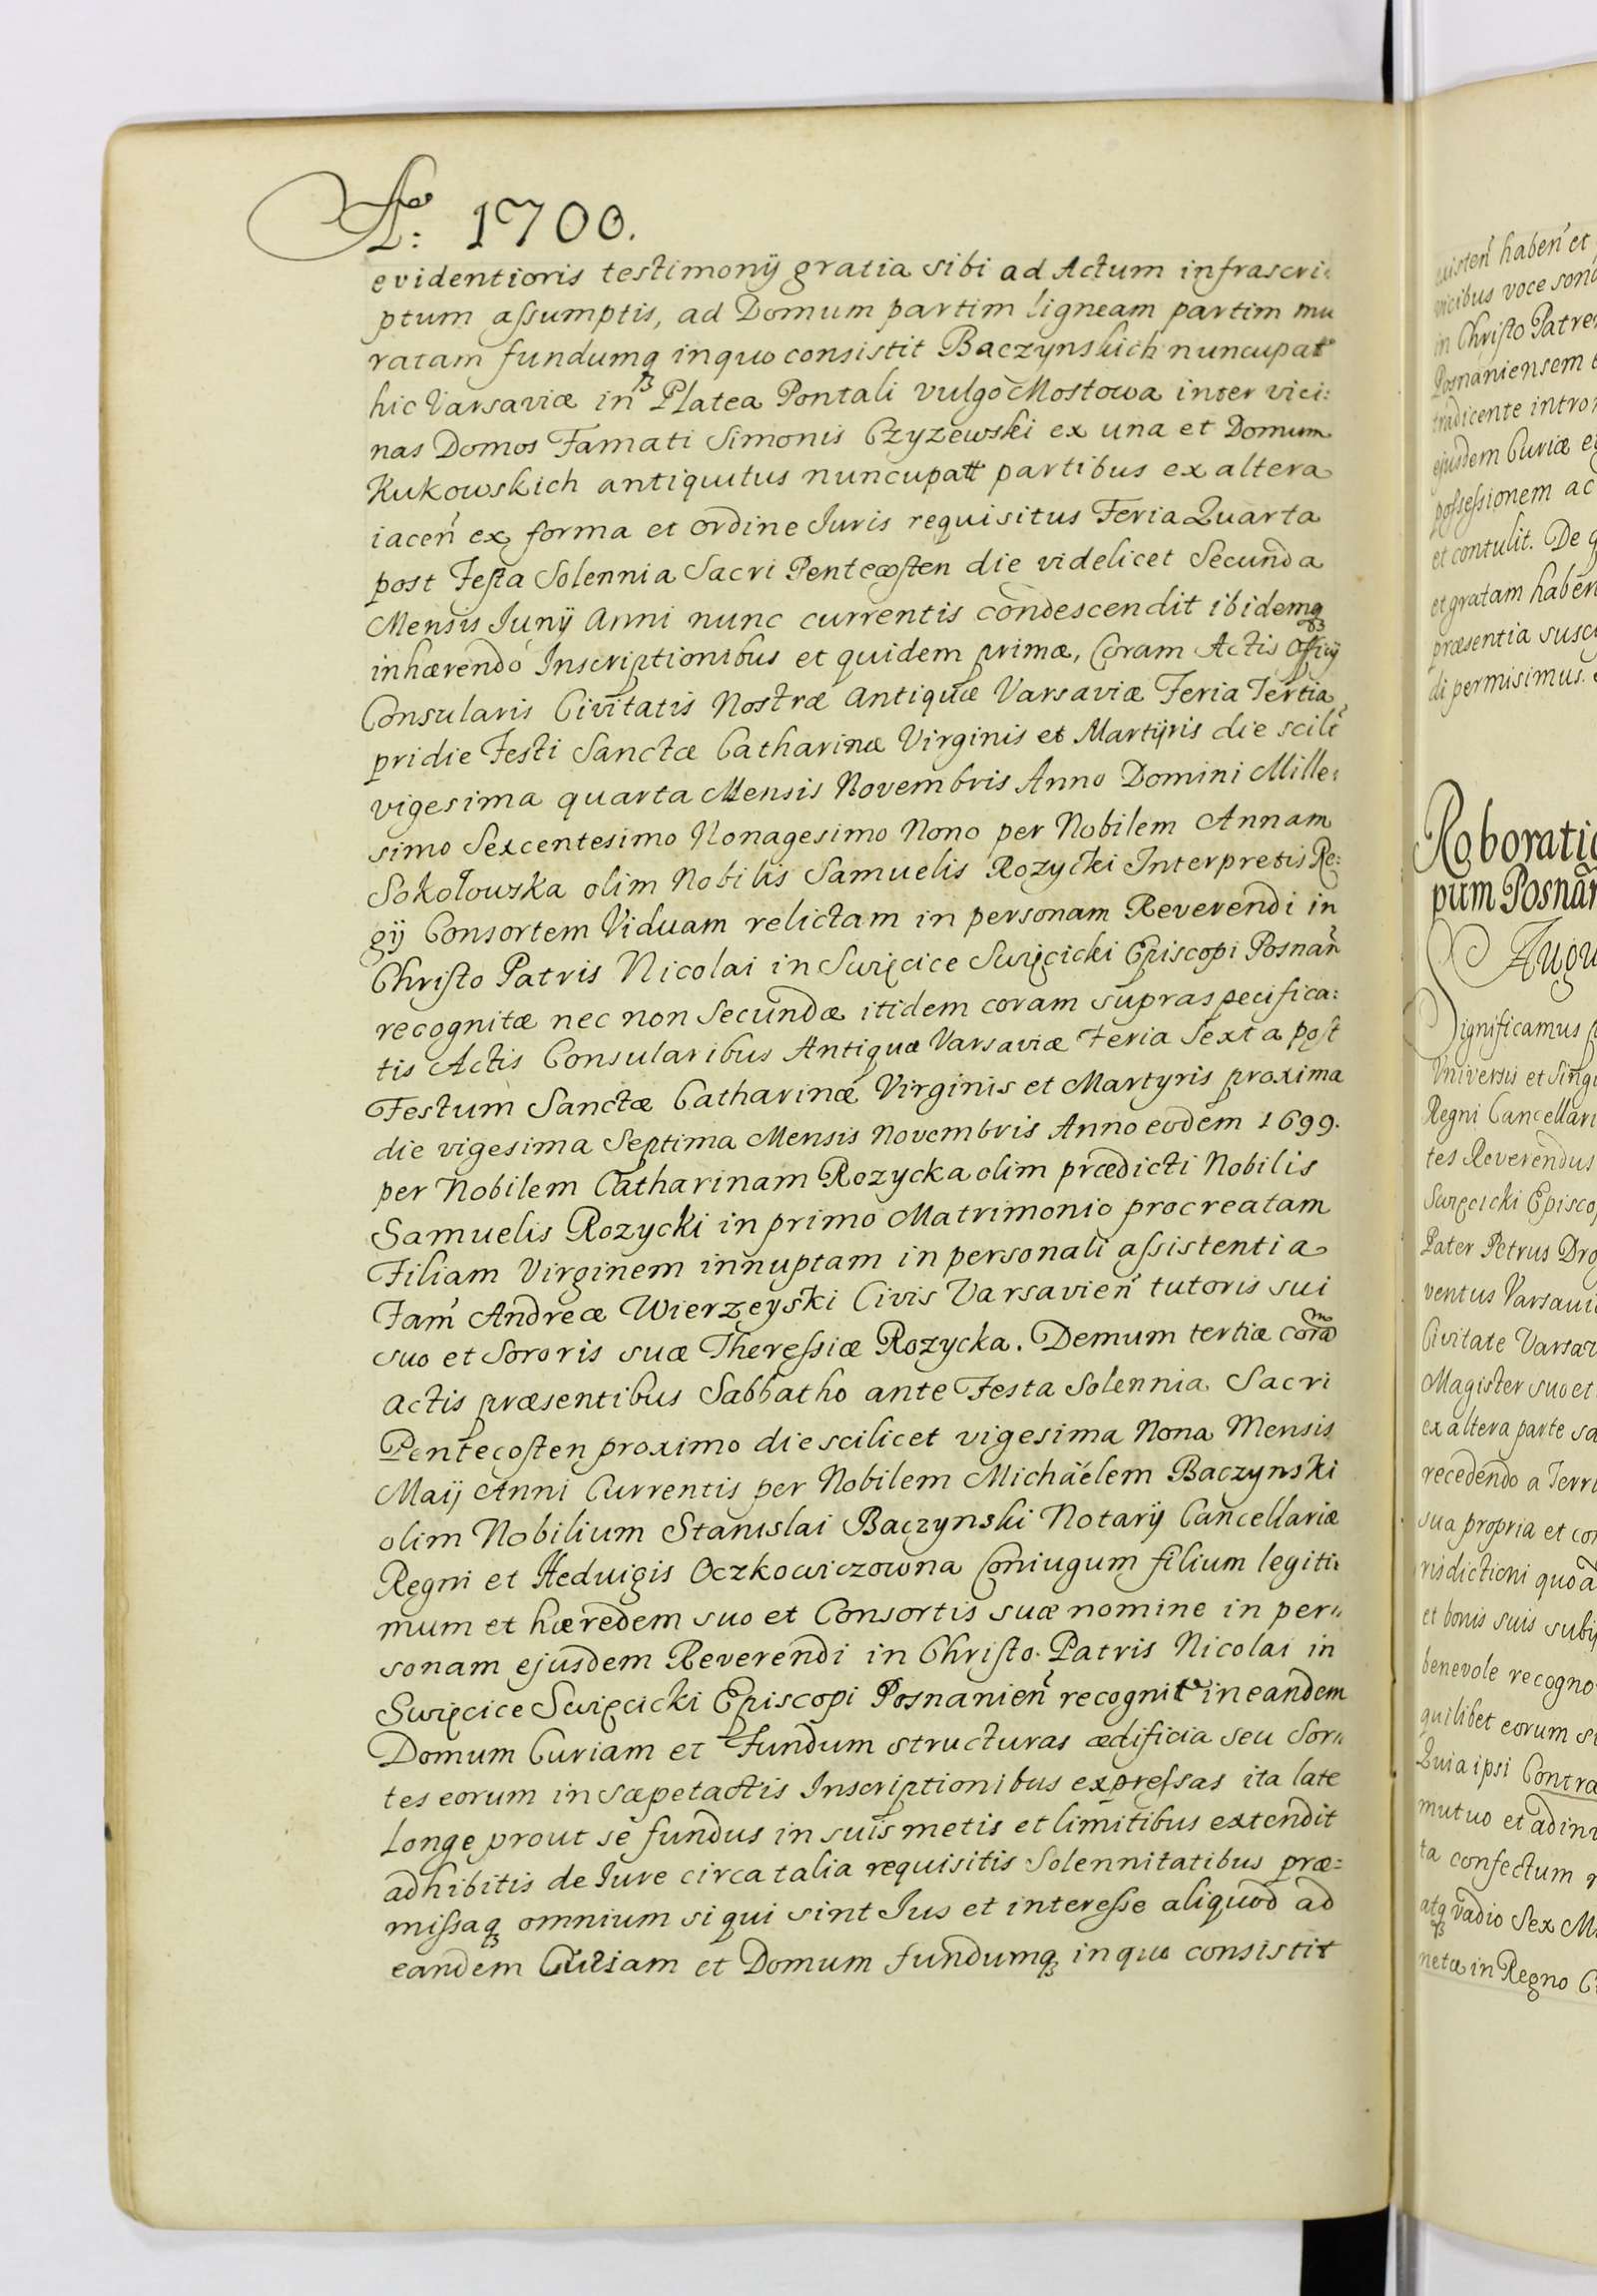 Aº: 1700.
evidentioris testimonij gratia sibi ad Actum infrascri:
ptum assumptis, ad Domum partim ligneam partim mu
ratam fundumq inquo consistit Baczynskich nuncupat
hic Varsaviæ in Platea Pontali vulgo Mostowa inter vici:
nas Domos Famati Simonis Czyzewski ex una et Domum
Kukowskich antiquitus nuncupatt partibus ex altera
iacen ex forma et ordine Iuris requisitus Feria Quarta
post Festa Solennia Sacri Pentecosten die videlicet Secunda
Mensis Iunij Anni nunc currentis condescendit ibidemq
inhærendo Inscriptionibus et quidem primæ, Coram Actis Officij
Consularis Civitatis Nostræ Antiquæ Varsaviæ Feria Tertia
pridie Festi Sanctæ Catharinæ Virginis et Martyris die scilt
vigesima quarta Mensis Novembris Anno Domini Mille:
simo Sexcentesimo Nonagesimo Nono per Nobilem Annam
Sokołowska olim Nobilis Samuelis Rozycki Interpretis Re:
gij Consortem Viduam relictam in personam Reverendi in
Christo Patris Nicolai in Swięcice Swięcicki Episcopi Posnan
recognitæ nec non Secundæ itidem coram supraspecifica:
tis Actis Consularibus Antiquæ Varsaviæ Feria Sexta post
Festum Sanctæ Catharinæ Virginis et Martyris proxima
die vigesima Septima Mensis Novembris Anno eodem 1699.
per Nobilem Catharinam Rozycka olim prædicti Nobilis
Samuelis Rozycki in primo Matrimonio procreatam
Filiam Virginem innuptam in personali assistentia
Fam Andreæ Wierzeyski Civis Varsavien tutoris sui
suo et Sororis suæ Theressiæ Rozycka. Demum tertiæ coram
Actis præsentibus Sabbatho ante Festa Solennia Sacri
Pentecosten proximo die scilicet vigesima Nona Mensis
Maij Anni Currentis per Nobilem Michäelem Baczynski
olim Nobilium Stanislai Baczynski Notarij Cancellariæ
Regni et Hedvigis Oczkowiczowna Coniugum filium legiti:
mum et hæredem suo et Consortis suæ nomine in per:
sonam ejusdem Reverendi in Christo Patris Nicolai in
Swięcice Swięcicki Episcopi Posnanien recognitæ in eandem
Domum Curiam et Fundum structuras ædificia seu Sor:
tes eorum in sæpetactis Inscriptionibus expressas ita late
Longe prout se fundus in suis metis et limitibus extendit
adhibitis de Iure circa talia requisitis Solennitatibus præ:
missaq omnium si qui sint Ius et interesse aliquod ad
eandem Curiam et Domum fundumq in quo consistit
haben et
vicibus voce
in Christo
Posnaniensem
tradicente
ejusdem Curiæ
possessionem ac
et contulit. De
et gratam
præsentia
di permisimus.
pum
Significamus
Universis et
Regni
tes Reverendus
Swięcicki
Pater Petrus
ventus
Civitate
Magister suo et
ex altera parte
recedendo a
sua propria et
risdictioni
et bonis suis
benevole
quilibet eorum
Quia ipsi
mutuo et
ta confectum
atq vadio Sex
netæ in Regno